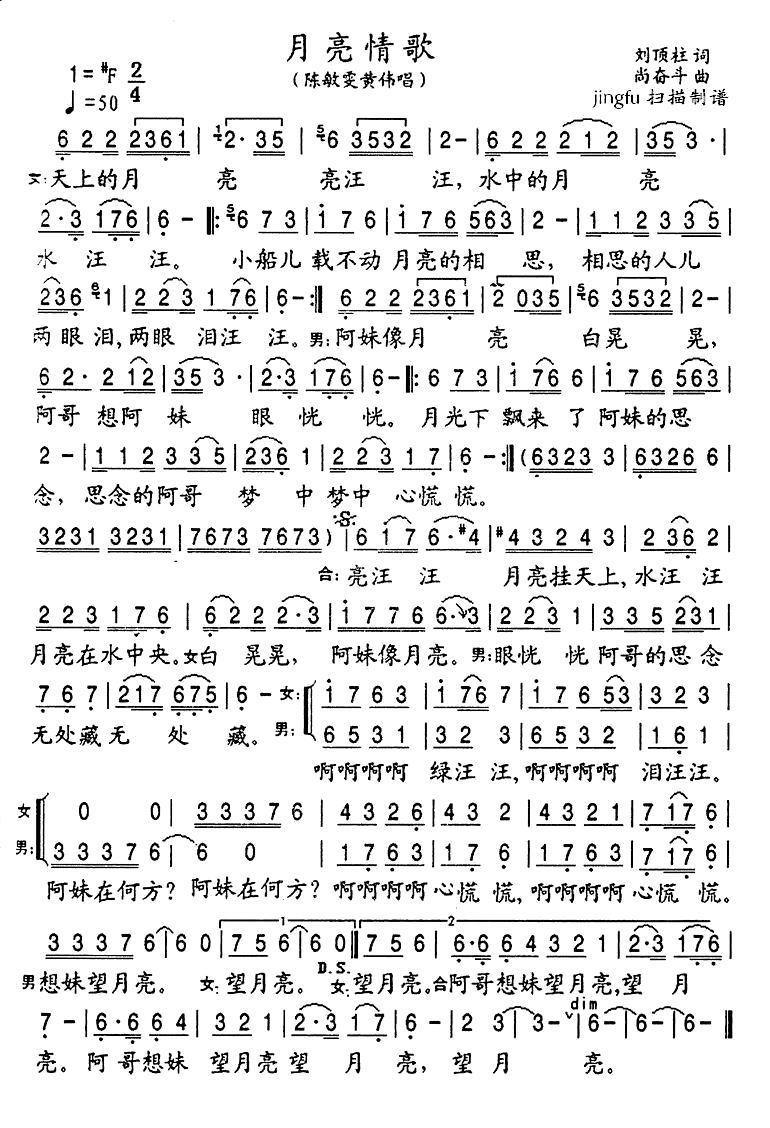 月亮情歌
(陈敏雯黄伟唱)
刘顶柱 词
尚奋斗 曲
jingfu 扫描制谱
1=#F 2/4
♩=50
6 2 2 2361 | 2· 35 | 6 3532 | 2- | 6 2 2 2 1 2 | 35 3· |
女:天上的月 亮 亮汪 汪, 水中的月 亮
2·3 176 | 6 - ‖: 6 7 3 | i 7 6 | i 7 6 563 | 2 - | 1 1 2 3 3 5 |
水 汪 汪。 小船儿 载不动 月亮的相 思, 相思的人儿
236 1 | 2 2 3 1 76 | 6 - :‖ 6 2 2 2361 | 2 035 | 6 3532 | 2- |
两眼泪,两眼 泪汪 汪。男:阿妹像月 亮 白晃 晃,
6 2· 2 12 | 35 3· | 2·3 176 | 6- ‖: 6 7 3 | i 76 6 | i 7 6 563 |
阿哥 想阿 妹 眼 恍 恍。 月光下 飘来 了 阿妹的思
2 - | 1 1 2 3 3 5 | 236 1 | 2 2 3 1 7 | 6 - :‖ (6323 3 | 6326 6 |
念, 思念的阿哥 梦 中梦中 心慌 慌。
3231 3231 | 7673 7673) | 6 i 7 6·#4 | #4 3 2 4 3 | 2 36 2 |
合: 亮汪 汪 月亮挂天上,水汪 汪
2 2 3 1 7 6 | 6 2 2 2·3 | i 7 7 6 6·3 | 2 2 3 1 | 3 3 5 231 |
月亮在水中央。女白 晃晃, 阿妹像月亮。男:眼恍 恍 阿哥的思念
7 6 7 | 217 675 | 6 - 女: i 7 6 3 | i 76 7 | i 7 6 53 | 3 2 3 |
无处藏无 处 藏。 男: 6 5 3 1 | 3 2 3 | 6 5 3 2 | 1 6 1 |
啊啊啊啊 绿汪 汪,啊啊啊啊 泪汪汪。
女 0 0 | 3 3 3 7 6 | 4 3 2 6 | 4 3 2 | 4 3 2 1 | 7 17 6 |
男: 3 3 3 7 6 | 6 0 | 1 7 6 3 | 1 7 6 | 1 7 6 3 | 7 17 6 |
阿妹在何方? 阿妹在何方? 啊啊啊啊心慌 慌,啊啊啊啊 心慌 慌。
1 2
3 3 3 7 6 | 6 0 | 7 5 6 | 6 0 ‖ 7 5 6 | 6·6 6 4 3 2 1 | 2·3 176 |
D.S.
男想妹望月亮。 女:望月亮。 女:望月亮。合阿哥想妹望月亮,望 月
dim
7 - | 6·6 6 4 | 3 2 1 | 2·3 1 7 | 6 - | 2 3 | 3- | 6- | 6- | 6- ‖
亮。阿哥想妹 望月亮望 月 亮, 望 月 亮。